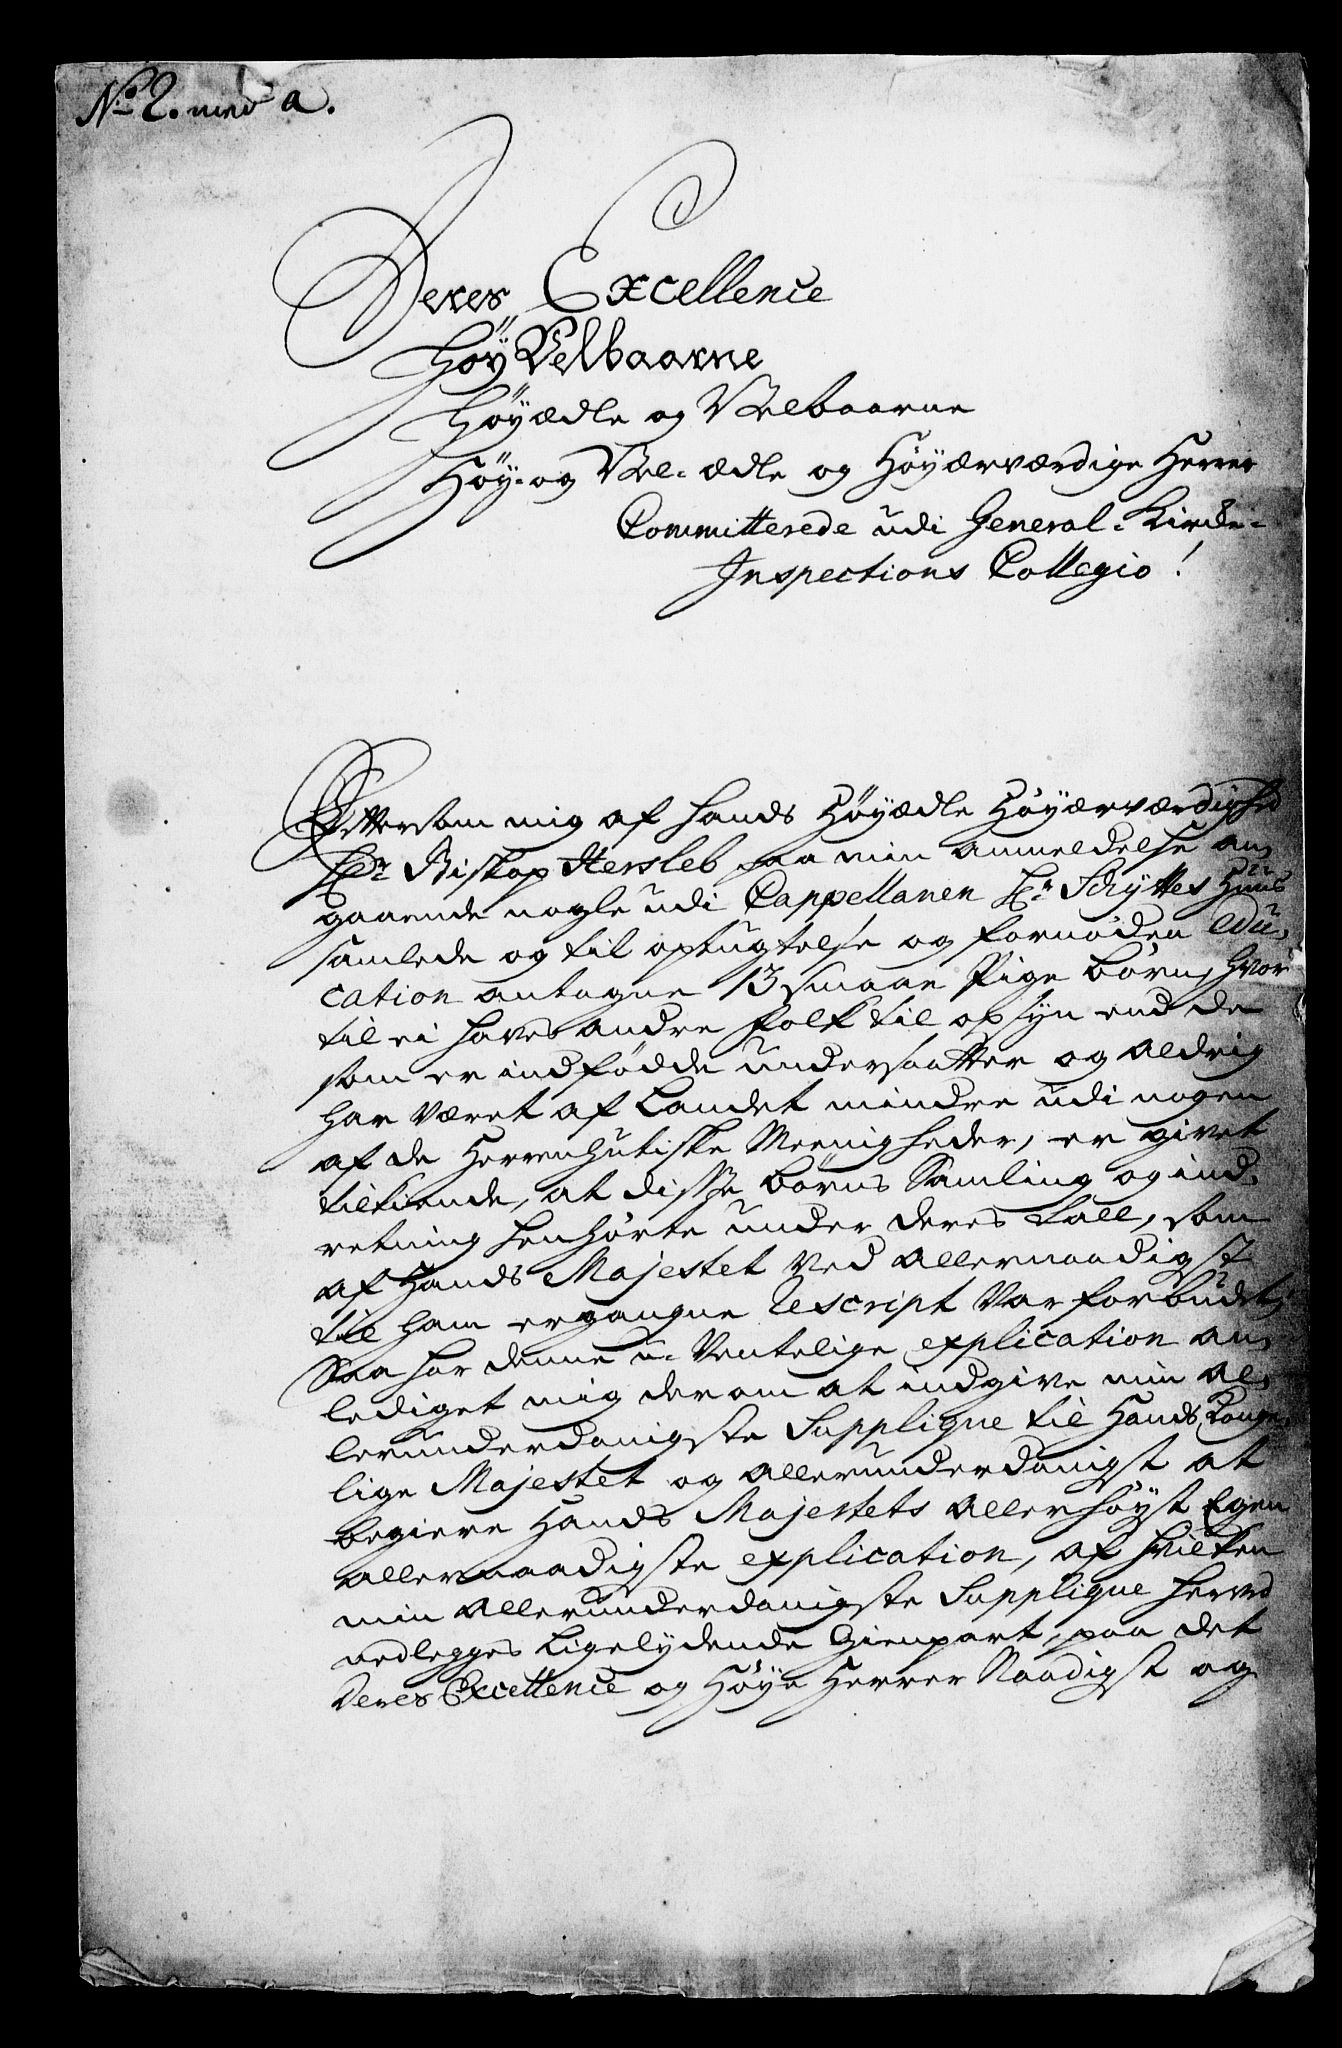 No 2. med a.
Deres Excellence
HöyVelbaarne
Höyædle og Velbaarne
Höy- og Vel-ædle og Höyærværdige Herrer
Committerede udi General-Kirke-
Inspections Collegio!
Eftersom mig af Hands Höyædle Höyærværdighed
Hr. Biskop Hersleb paa min anmeldelse an-
gaaende nogle udi Cappellanen Hr. Schyttes Huus
samlede og til optugtelse og fornöden edu-
cation antagne 13 smaae Pige börn, hvor
til ei haves andre folk til opsyn end de
som er indfödde undersaatter og aldrig
har været af Landet mindre udi nogen
af de Herrenhutiske Meenigheder, er givet
tilkiende, at disse börns Samling og ind-
retning henhörte under deres tall, som
af Hands Majestet ved allernaadigst
til ham ergangne Rescript var forbudet;
Saa har denne u-ventelige explication an-
lediget mig derom at indgive min al-
lerunderdanigste Supplique til Hands Konge-
lige Majestet og allerunderdanigst at
begiere Hands Majestets allerhöyst Egen
allernaadigste explication, af hvilken
min allerunderdanigste Supplique herved
vedlegges Ligelydende Gienpart, paa det
Deres Excellence og Höye Herrer Naadigst og